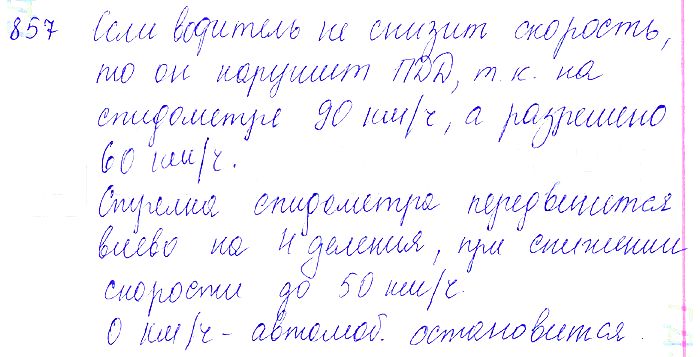 857 Если водитель не снизит скорость,
то он нарушит ПДД, т.к. на
спидометре 90 км/ч, а разрешено
60 км/ч.
Стрелка спидометра передвинется
влево на 4 деления, при снижении
скорости до 50 км/ч.
0 км/ч - автомоб. остановится.